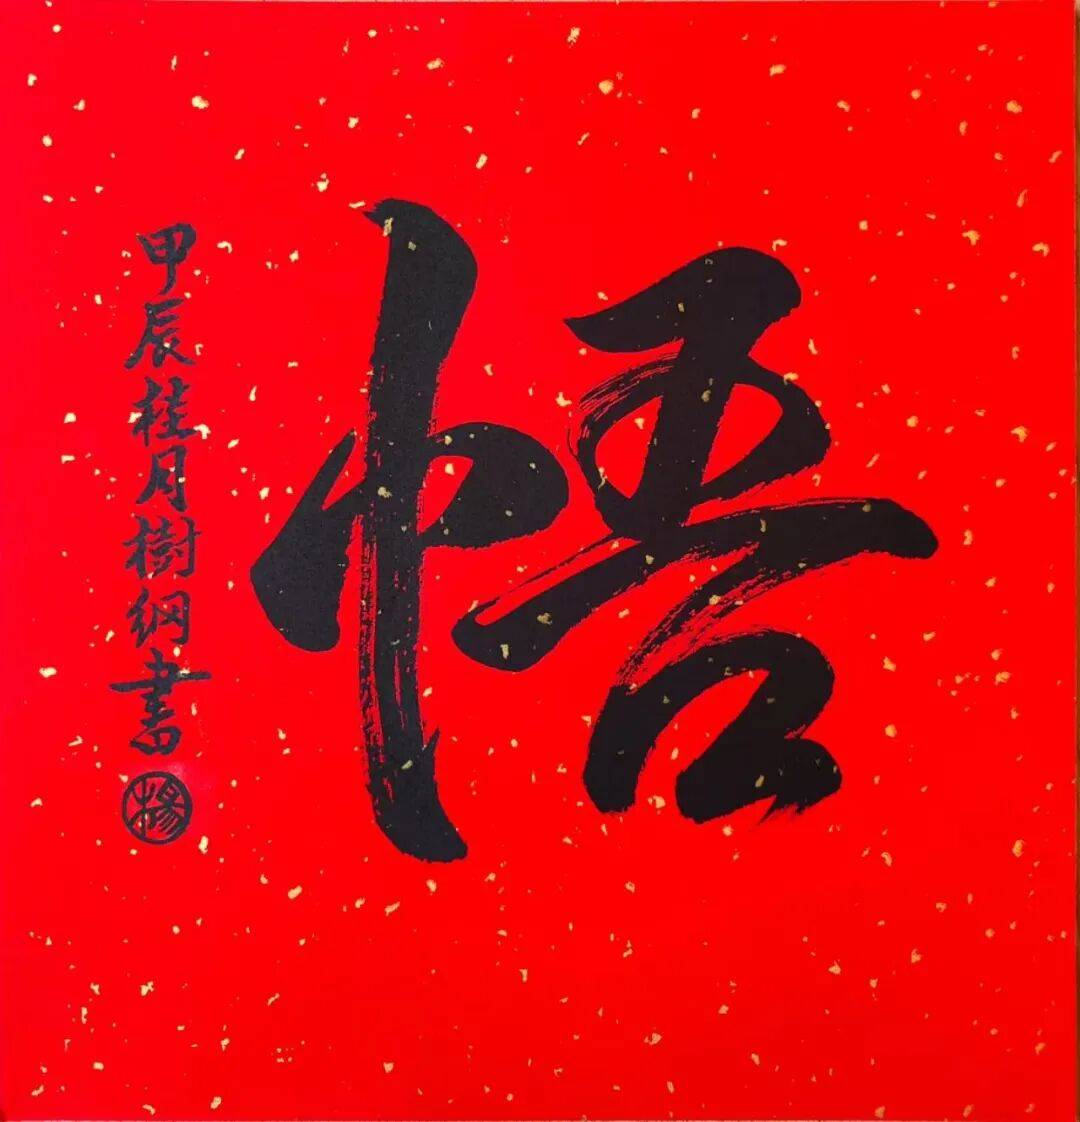 悟
甲辰桂月樹綱書
楊